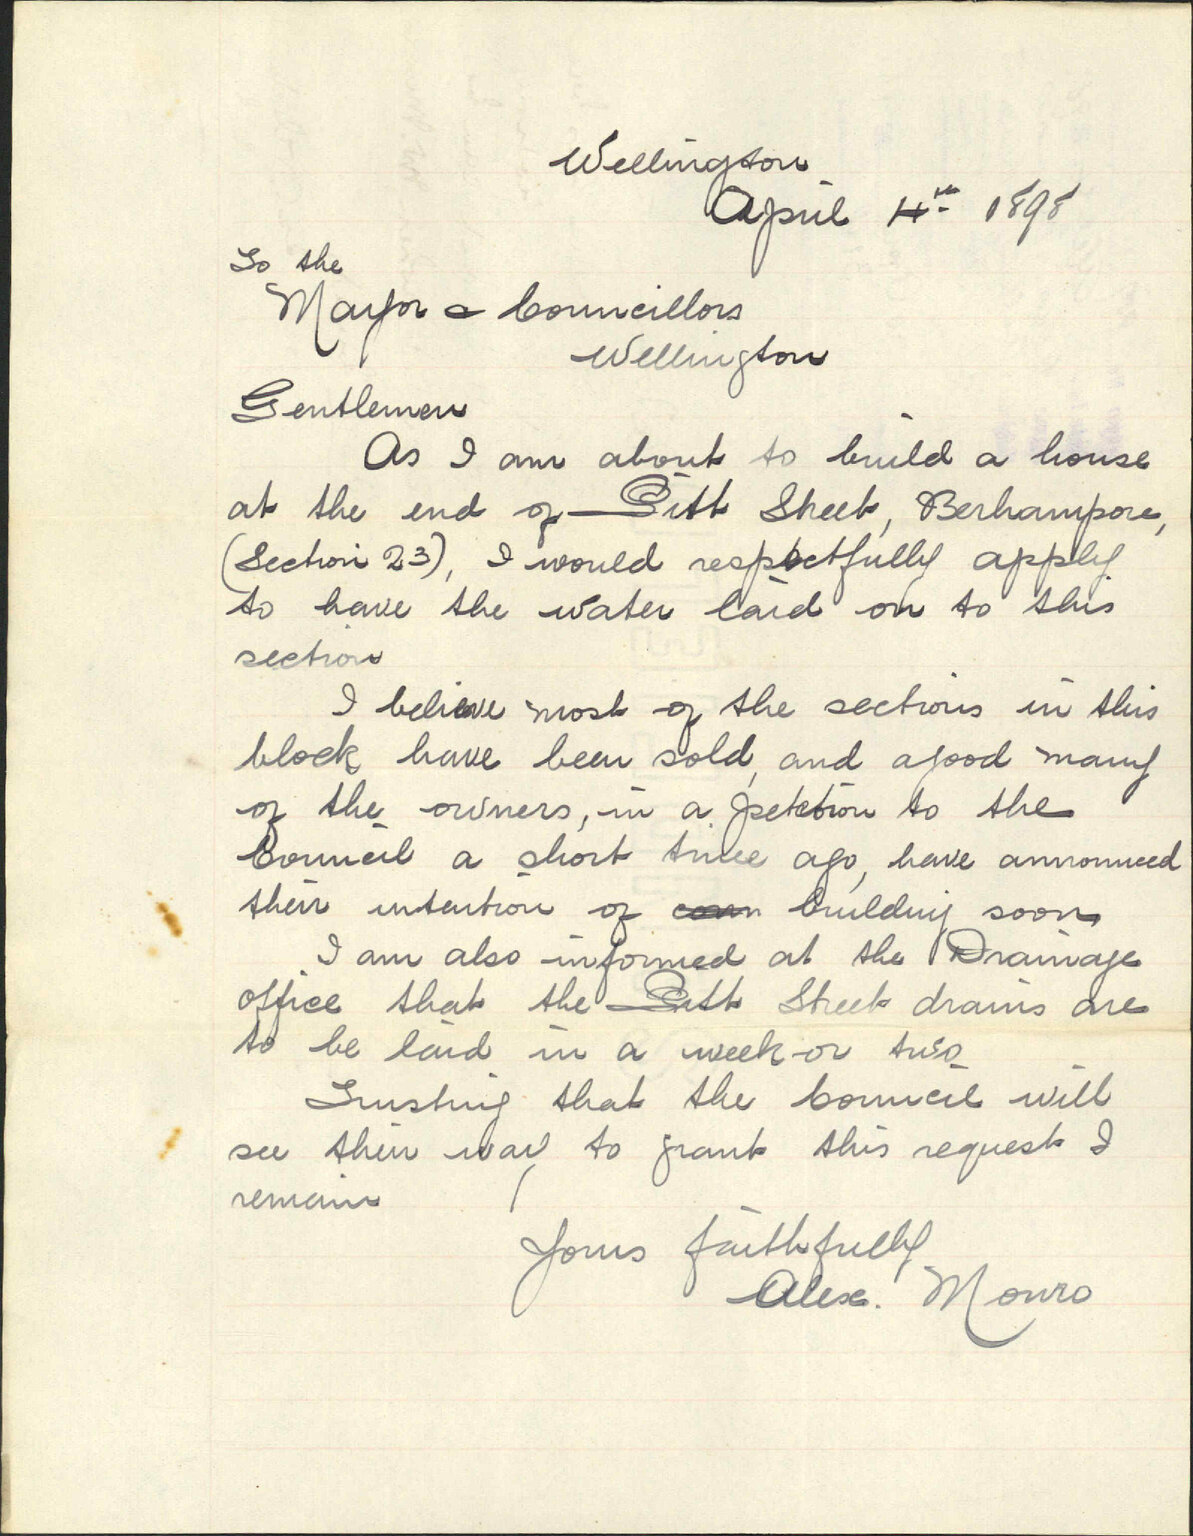 Wellington
April 4th 1898
To the
Mayor & Councillors
Wellington
Gentlemen
As I am about to build a house
at the end of Pitt Street, Berhampore,
(Section 23), I would respectfully apply
to have the water laid on to this
section
I believe most of the sections in this
block have been sold, and a good many
of the owners, in a petition to the
Council a short time ago, have announced
their intention of building soon,
I am also informed at the Drainage
office that the Pitt Street drains are
to be laid in a week or two
Trusting that the Council will
see their way to grant this request I
remain
Yours faithfully
Alex. Monro